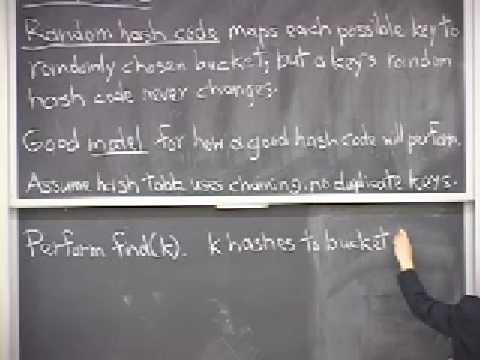 Random hash code maps each possible key to
randomly chosen bucket; but a key's random
hash code never changes.
Good model for how a good hash code will perform.
Assume hash table uses chaining, no duplicate keys.
Perform find(k). k hashes to bucket